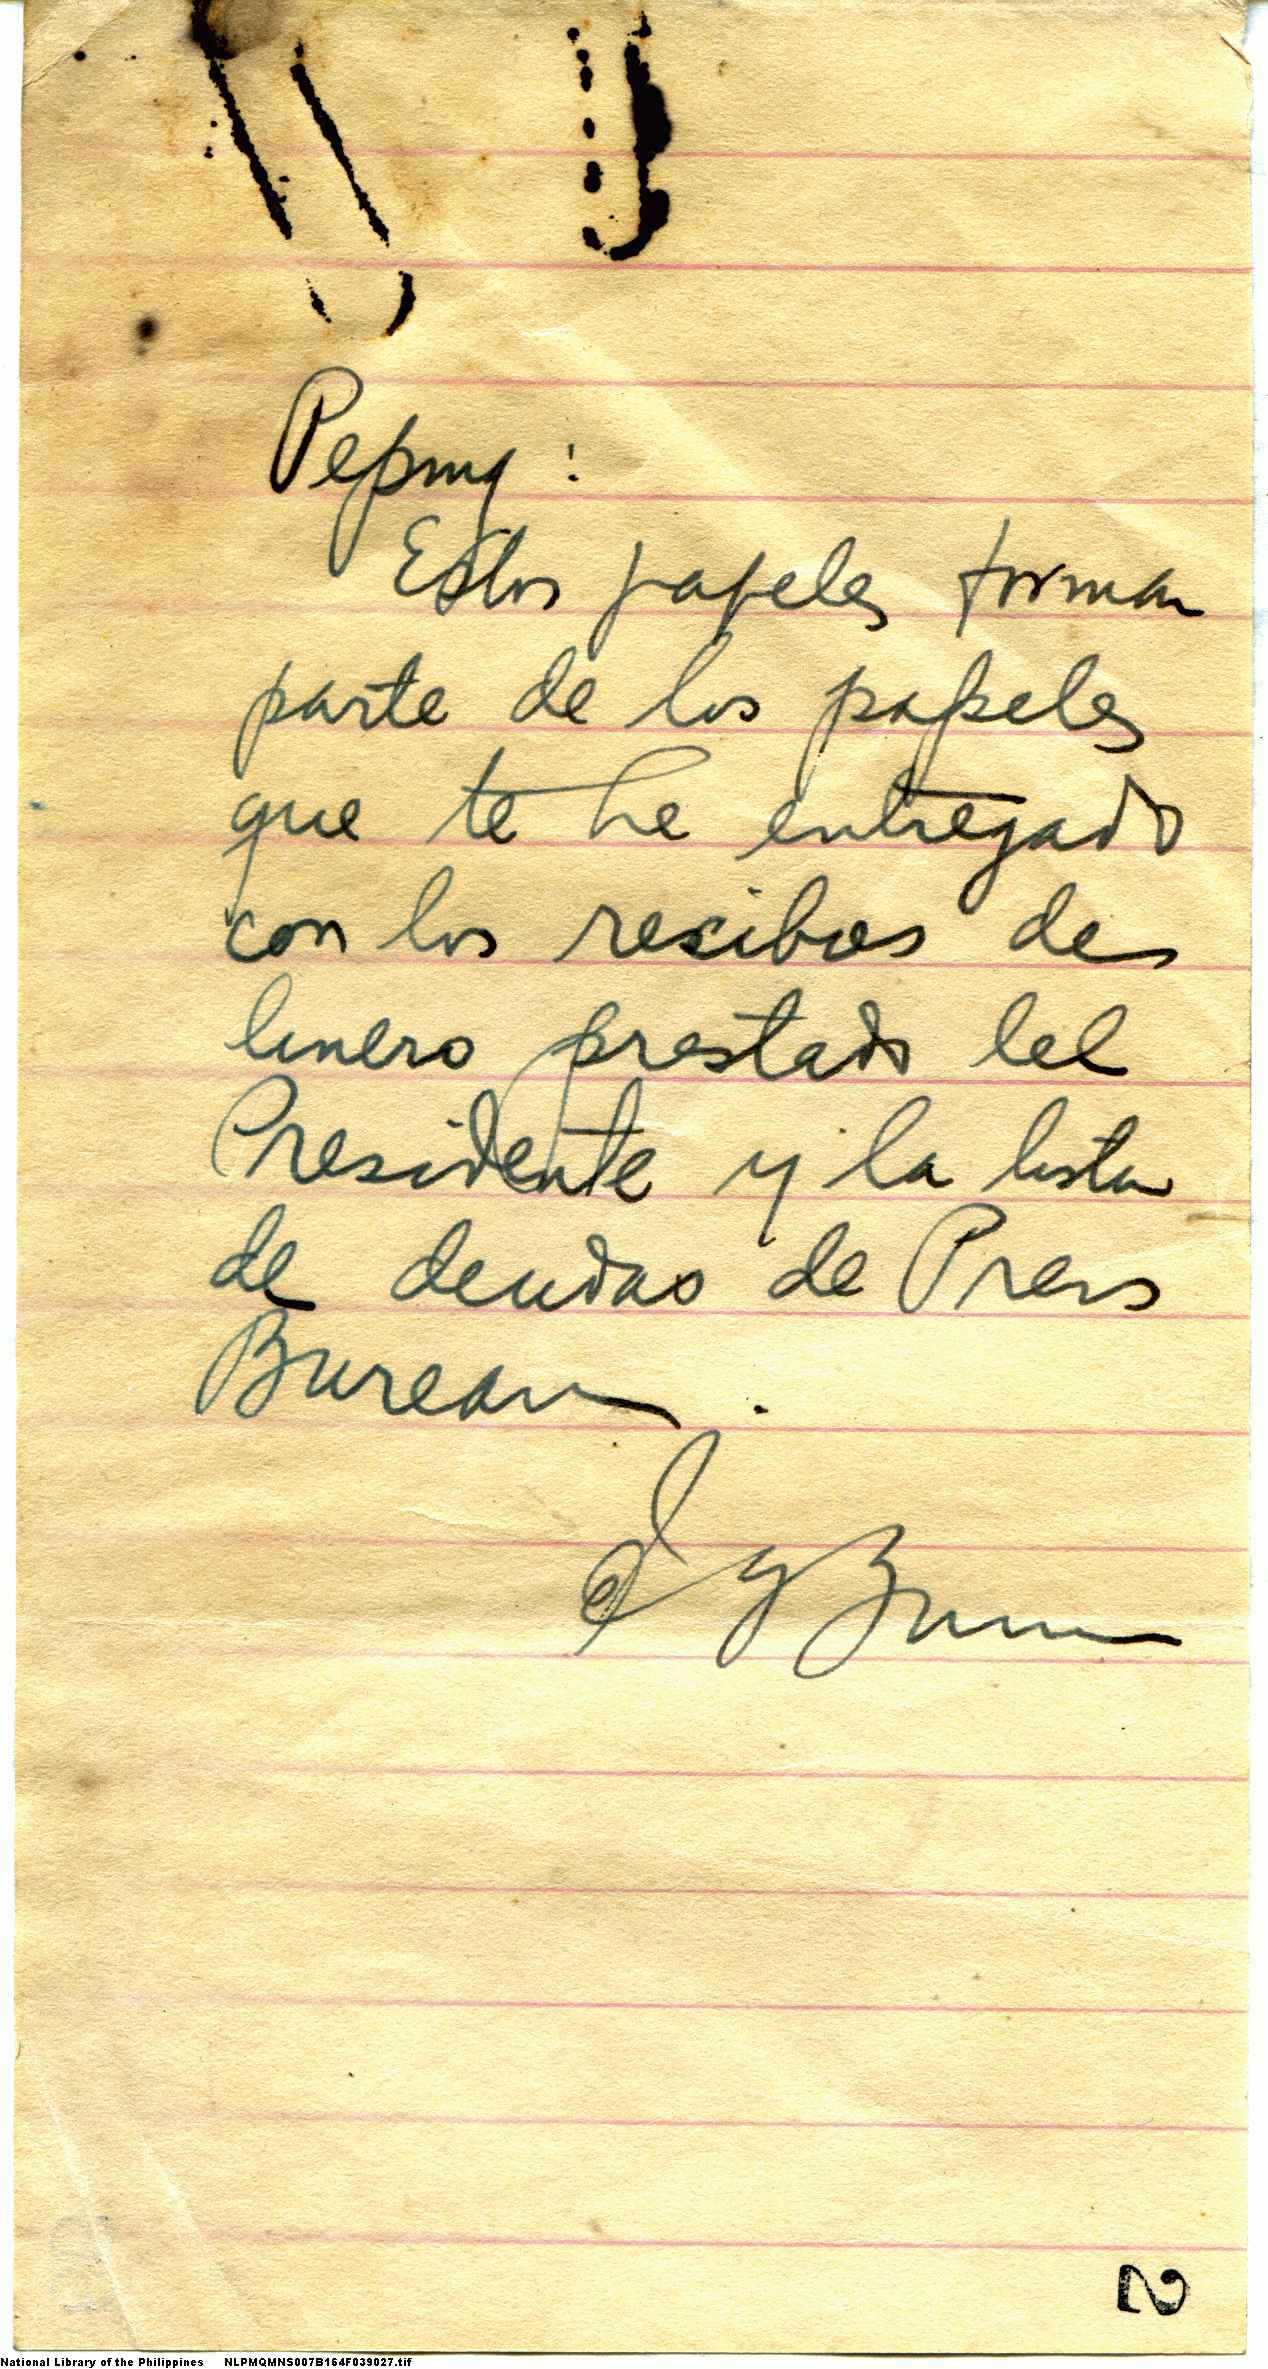 Peping:
Estos papeles forman
parte de los papeles
que te he entregado
con los recibos de
linero prestado lel
Presidente y la lista
de deudas de Press
Bureau.
2
National Library of the Philippines NLPMQMNS007B164F039027.tif